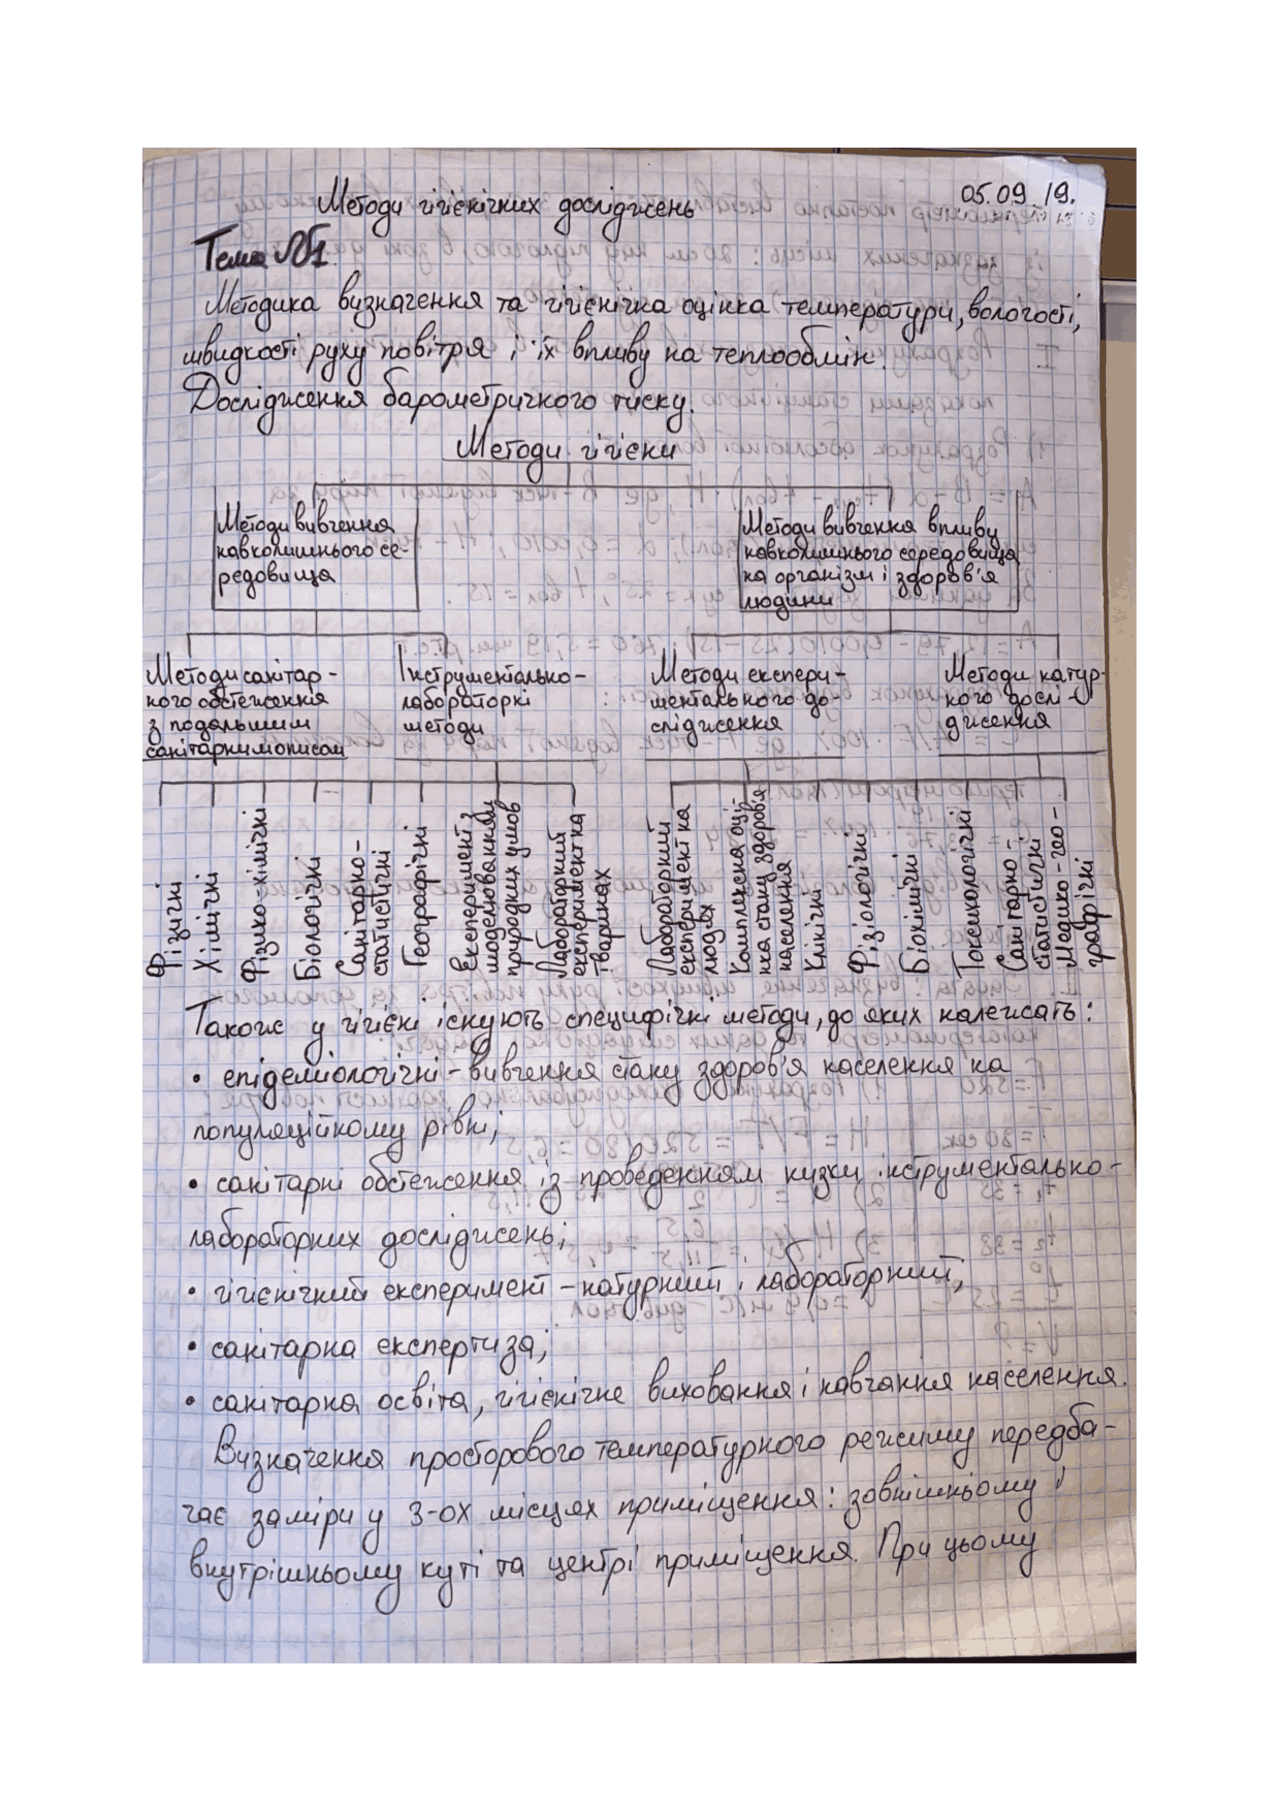 05.09.19.
Методи гігієнічних досліджень
Тема №1
Методика визначення та гігієнічна оцінка температури, вологості,
швидкості руху повітря і їх впливу на теплообмін.
Дослідження барометричного тиску.
Методи гігієни
Методи вивчення
навколишнього се-
редовища
Методи вивчення впливу
навколишнього середовища
на організм і здоров'я
людини
Методи санітар-
ного обстеження
з подальшим
санітарним описом
Інструментально-
лабораторні
методи
Методи експери-
ментального до
слідження
Методи натур-
ного дослі-
дження
Фізичні
Хімічні
Фізико-хімічні
Біологічні
Санітарно-
статистичні
Географічні
Експеримент з
моделюванням
природних умов
Лабораторний
експеримент на
тваринах
Лабораторний
експеримент на
людях
Комплексна оці
нка стану здоров'я
населення
Клінічні
Фізіологічні
Біохімічні
Токсикологічні
Санітарно-
статистичні
Медико-гео-
графічні
Також у гігієні існують специфічні методи, до яких належать:
• епідеміологічні - вивчення стану здоров'я населення на
популяційному рівні;
• санітарні обстеження із проведенням низки інструментально-
лабораторних досліджень;
• гігієнічний експеримент - натурний і лабораторний;
• санітарна експертиза;
• санітарна освіта, гігієнічне виховання і навчання населення.
Визначення просторового температурного режиму передба-
чає заміри у 3-ох місцях приміщення: зовнішньому і
внутрішньому куті та центрі приміщення. При цьому